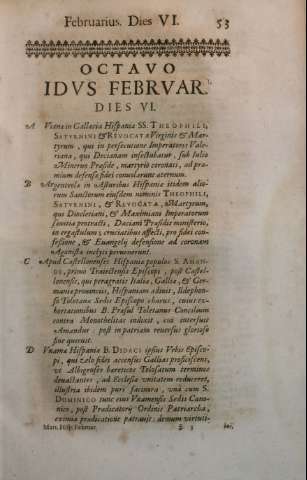 Februarius. Dies VI. 53
OCTAVO
IDVS FEBRVAR.
DIES VI.
A Viena in Gallæcia Hispania SS. THEOPHILI,
SATVRNINI & REVOCATÆ Virginis & Mar-
tyrum, qui in persecutione Imperatoris Vale-
riana, qua Decianam insectabatur, sub Iulio
Minervo Præside, martyrio coronati, ad præ-
mium defensæ fidei convolarunt æternum.
B Argenteola in Asturibus Hispaniæ itidem alio-
rum Sanctorum eiusdem nominis THEOPHILI,
SATVRNINI, & REVOCATÆ, Martyrum,
qui Diocletiani, & Maximiani Imperatorum
sævitia protracti, Daciani Præsidis ministerio,
in ergastulum & cruciatibus affecti, pro fidei con-
fessione, & Euangelij defensione ad coronam
Agonistæ inclyti pervenerunt.
C Apud Castellonenses Hispaniæ populos S. AMAN-
DI, primo Traiectensis Episcopi, post Castel-
lonensis, qui peragratis Italia, Gallia, & Ger-
mania provincijs, Hispaniam adivit, Ildephon-
so Toletanæ Sedis Episcopo charus, cuius ex-
hortationibus B. Præsul Toletanum Concilium
contra Monothelitas indixit, cui interfuit
Amandus: post in patriam reversus glorioso
fine quievit.
D Vxamæ Hispaniæ B. DIDACI ipsius Vrbis Episco-
pi, qui zelo fidei accensus Gallias proficiscens,
vt Albigenses hæreticos Tolosatum terminos
devastantes, ad Ecclesiæ vnitatem reduceret,
illustria ibidem patravit facinora, vnà cum S.
DOMINICO tunc eius Vxamensis Sedis Cano-
nico, post Prædicatorij Ordinis Patriarcha,
eximia prædicatione patravit: demum virtuti-
Mart. Hisp. Februar. g 3 bus,